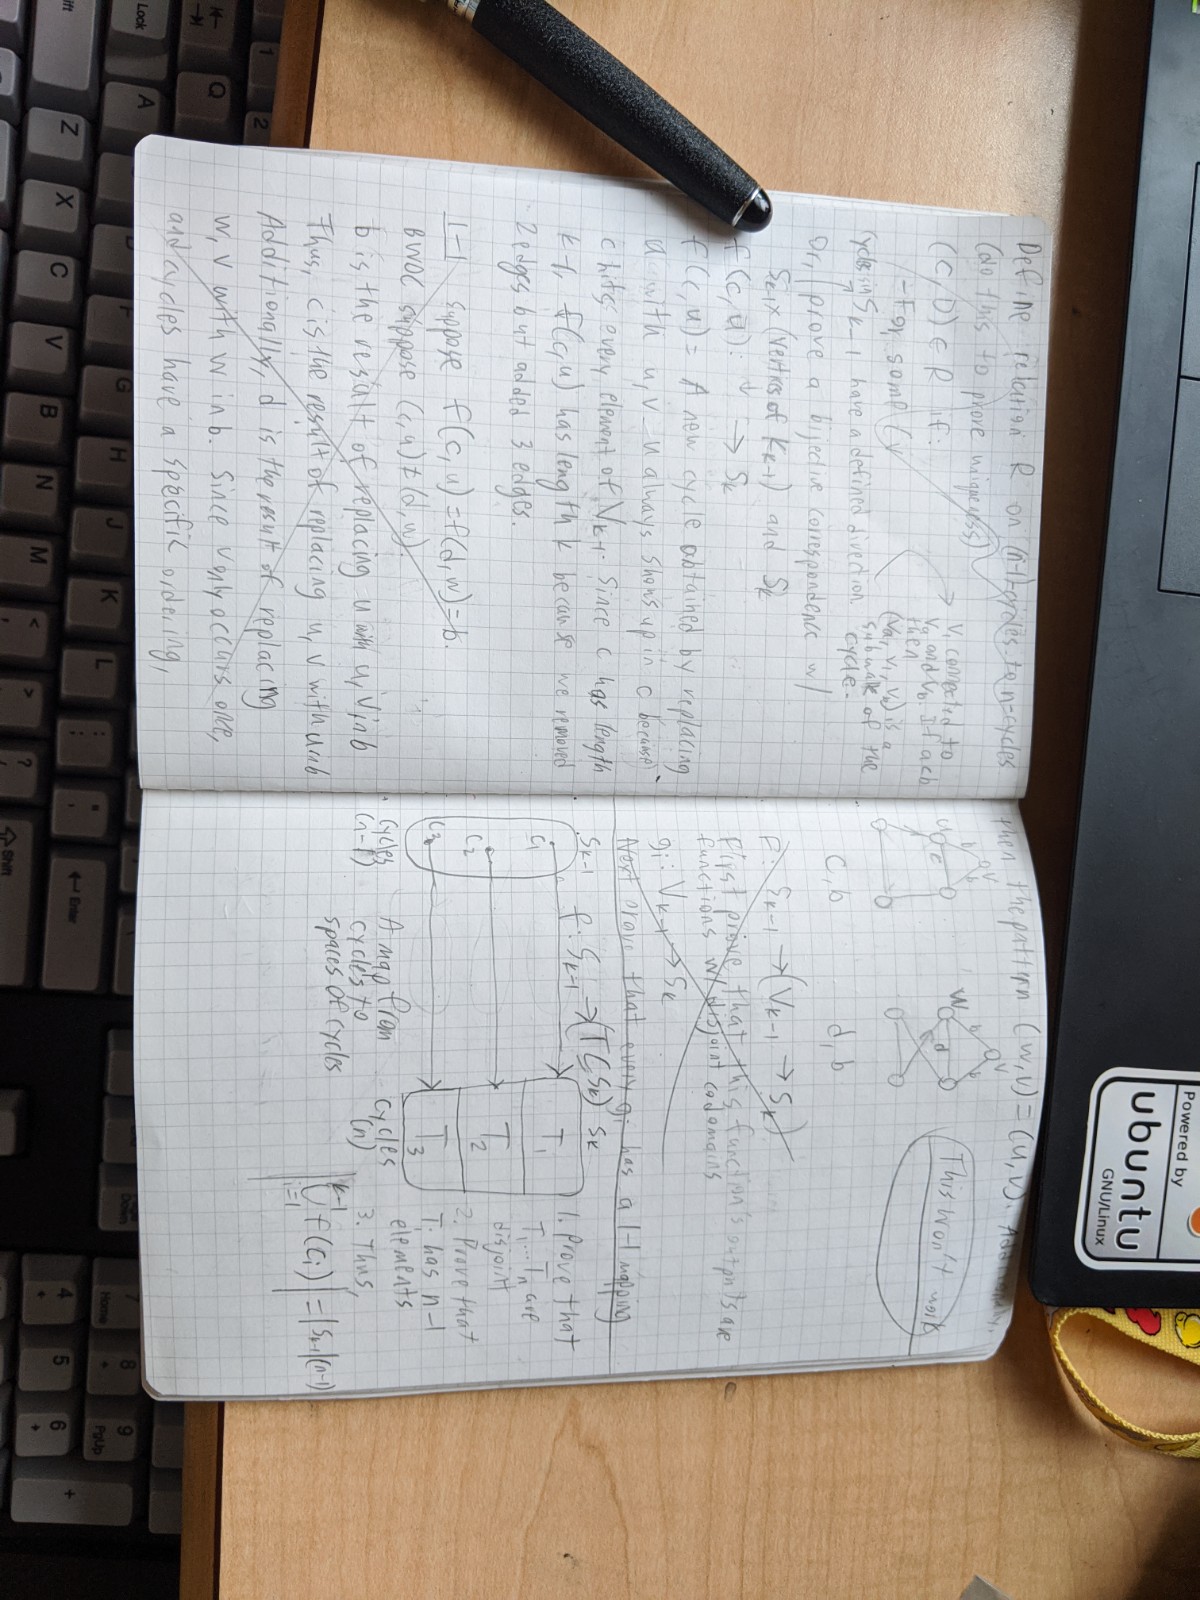 Define relation R on n-1 cycles to n-cycles
(do this to prove uniqueness)
(C, D) ∈ R if:
- For some
cycles in S k-1 have a defined direction
v, connected to
Va and Vb. If a cb
then
(Va, V1, Vb) is a
subwalk of the
cycle.
Or, prove a bijective correspondence w/
Sk-1 x (vertices of Kk-1) and Sk
f(c,u): ↓ → Sk
f(c,u) = A new cycle obtained by replacing
u with u, v - u always shows up in c because
c hits every element of Vk-1. Since c has length
k-1, f(c,u) has length k because we removed
2 edges but added 3 edges.
1-1 suppose f(c,u) = f(d,w) = b.
BWOC suppose (c,u) ≠ (d,w).
b is the result of replacing u with u,v in b
Thus, c is the result of replacing u,v with u in b
Additionally, d is the result of replacing
w, v with w in b. Since v only occurs once,
and cycles have a specific ordering,
then the pattern (w,v) = (u,v). Additionally,
u
v
b
b
c
w
b
v
b
d
C, b
d, b
This won't work
f: Sk-1 → (Vk-1 → Sk)
First prove that this function's outputs are
functions w/ disjoint codomains
gi: Vk-1 → Sk
Next prove that every gi has a 1-1 mapping
Sk-1 f: Sk-1 → (T ⊆ Sk) Sk
C1
C2
C3
T1
T2
T3
cycles
(n-1)
A map from
cycles to
spaces of cycles
cycles
(n)
1. Prove that
T1...Tn are
disjoint
2. Prove that
Ti has n-1
elements
3. Thus,
|k-1 ∪ i=1 f(Ci)| = |Sk-1|(n-1)
Powered by
ubuntu
GNU/Linux
Lock
Shift
Enter
Home
PgUp
1
2
Q
A
Z
X
C
V
B
N
M
D
G
H
J
K
L
4
5
6
7
8
9